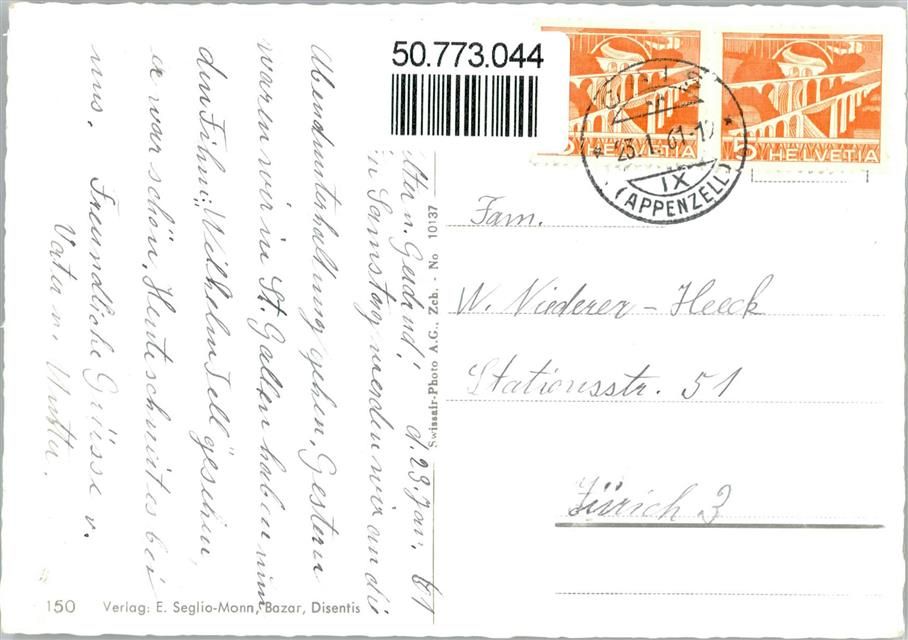 50.773.044
5 HELVETIA
5 HELVETIA
23.1.61-12
IX
(APPENZELL)
Fam.
W. Niederer-Heeck
Stationsstr. 51
Zürich 3
d. 23. Jan. 61
Samstag werden wir an die
Abendunterhaltung gehen. Gestern
waren wir in St. Gallen haben nun
den Film: "Wilhelm Tell" gesehen,
er war schön, Heute schneit es bei
uns. Freundliche Grüsse v.
Vater u. Mutter.
Swissair-Photo A.G., Zch. - No 10137
150 Verlag: E. Seglio-Monn, Bazar, Disentis